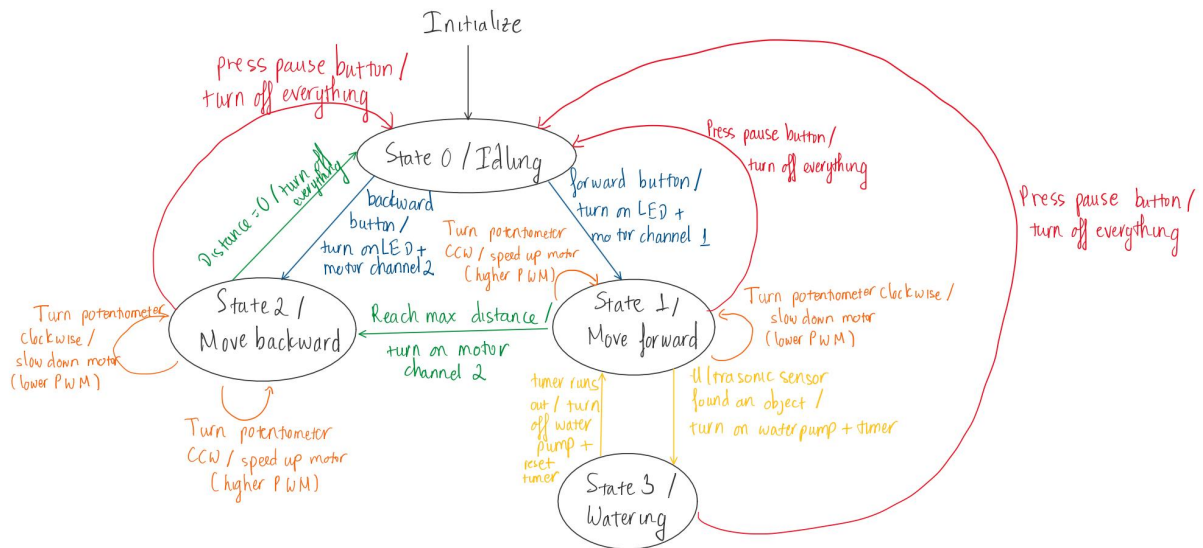 Initialize
press pause button /
turn off everything
State 0 / Idling
Press pause button /
turn off everything
Press pause button /
turn off everything
Distance = 0 / turn off
everything
backward
button /
turn on LED +
motor channel 2
forward button /
turn on LED +
motor channel 1
Turn potentiometer
CCW / speed up motor
(higher PWM)
State 2 /
Move backward
Reach max distance /
turn on motor
channel 2
State 1 /
Move forward
Turn potentiometer clockwise /
slow down motor
(lower PWM)
Turn potentiometer
clockwise /
slow down motor
(lower PWM)
Turn potentiometer
CCW / speed up motor
(higher PWM)
timer runs
out / turn
off water
pump +
reset
timer
Ultrasonic sensor
found an object /
turn on water pump + timer
State 3 /
Watering